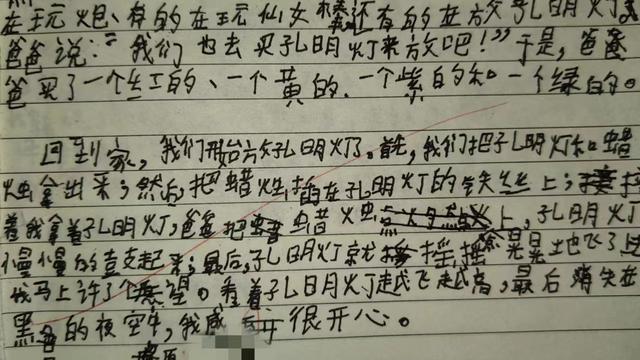 在玩火炮、有的在玩仙女棒,还有的在放孔明灯。
爸爸说:“我们也去买孔明灯来放吧!”于是,爸
爸买了一个红的、一个黄的、一个紫的和一个绿的。
回到家,我们开始放孔明灯了。首先,我们把孔明灯和蜡
烛拿出来;然后,把蜡烛插在孔明灯的铁丝上;接
着我拿着孔明灯,爸爸把蜡烛点上,孔明灯
慢慢的直支起来;最后,孔明灯就摇摇晃晃地飞了上
我马上许了个愿望。看着孔明灯越飞越高,最后消失在
黑色的夜空中,我感很开心。